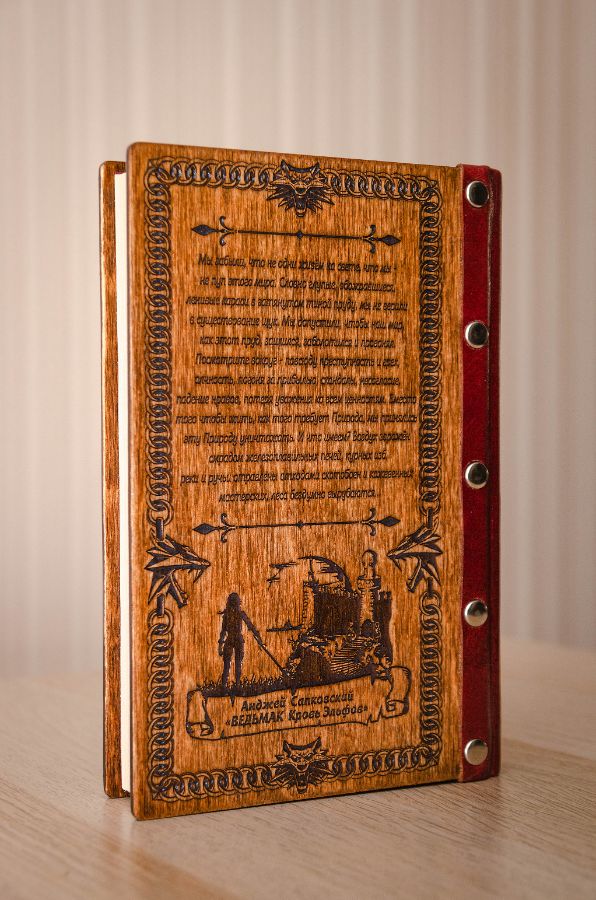 Мы забыли, что не одни живём на свете, что мы -
не пуп этого мира. Словно глупые, обожравшиеся,
ленивые караси в затянутом тиной пруду, мы не верили
в существование щук. Мы допустили, чтобы наш мир,
как этот пруд, заилился, заболотился и провонял.
Посмотрите вокруг - повсюду преступность и грех,
алчность, погоня за прибылью, скандалы, несогласие,
падение нравов, потеря уважения ко всем ценностям. Вместо
того чтобы жить, как того требует Природа, мы принялись
эту Природу уничтожать. И что имеем? Воздух заражён
смрадом железоплавильных печей, курных изб,
реки и ручьи отравлены отходами скотобоен и кожевенных
мастерских, леса бездумно вырубаются
Анджей Сапковский
«ВЕДЬМАК Кровь Эльфов»